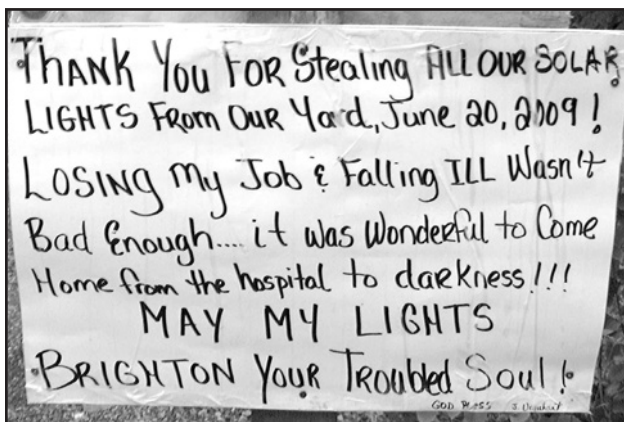 THANK YOU FOR Stealing ALL OUR SOLAR
LIGHTS FROM OUR Yard, June 20, 2009!
LOSING My Job & Falling ILL Wasn't
Bad Enough.... it was Wonderful to Come
Home from the hospital to darkness!!!
MAY MY LIGHTS
BRIGHTON YOUR Troubled Soul!
GOD BLESS